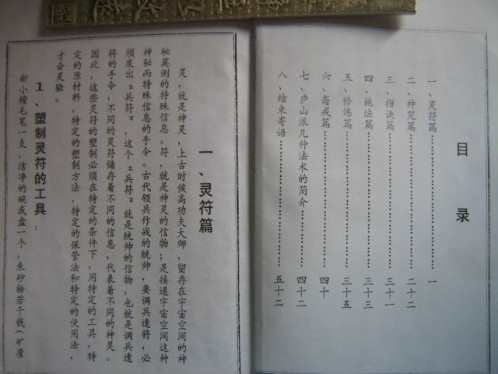 目录
一、灵符篇……………………一
二、神咒篇……………………二十二
三、指诀篇……………………
四、施法篇……………………三十三
五、修炼篇……………………三十五
六、斋戒篇……………………四十
七、庐山派几种法术的简介……………四十二
八、结束寄语……………………五十二
一、灵符篇
灵，就是神灵，上古时候高功夫大师，留存在宇宙空间的神
秘莫测的特殊信息。符，就是神灵的信物；是接通宇宙空间这种
神秘而特殊信息的手令。古代领兵作战的统帅，要调兵遣将，必
须发出“兵符”，这个“兵符”，就是统帅的信物，也就是调兵遣
将的手令，不同的灵符储存着不同的信息，代表着不同的神灵。
因此，这些灵符的塑制必须在特定的条件下，用特定的工具，特
定的原材料，特定的塑制方法，特定的保管法和特定的使用法，
才会灵验。
1、塑制灵符的工具：
新小楷毛笔一支，洁净的碗或盆一个，朱砂粉若干钱（矿産